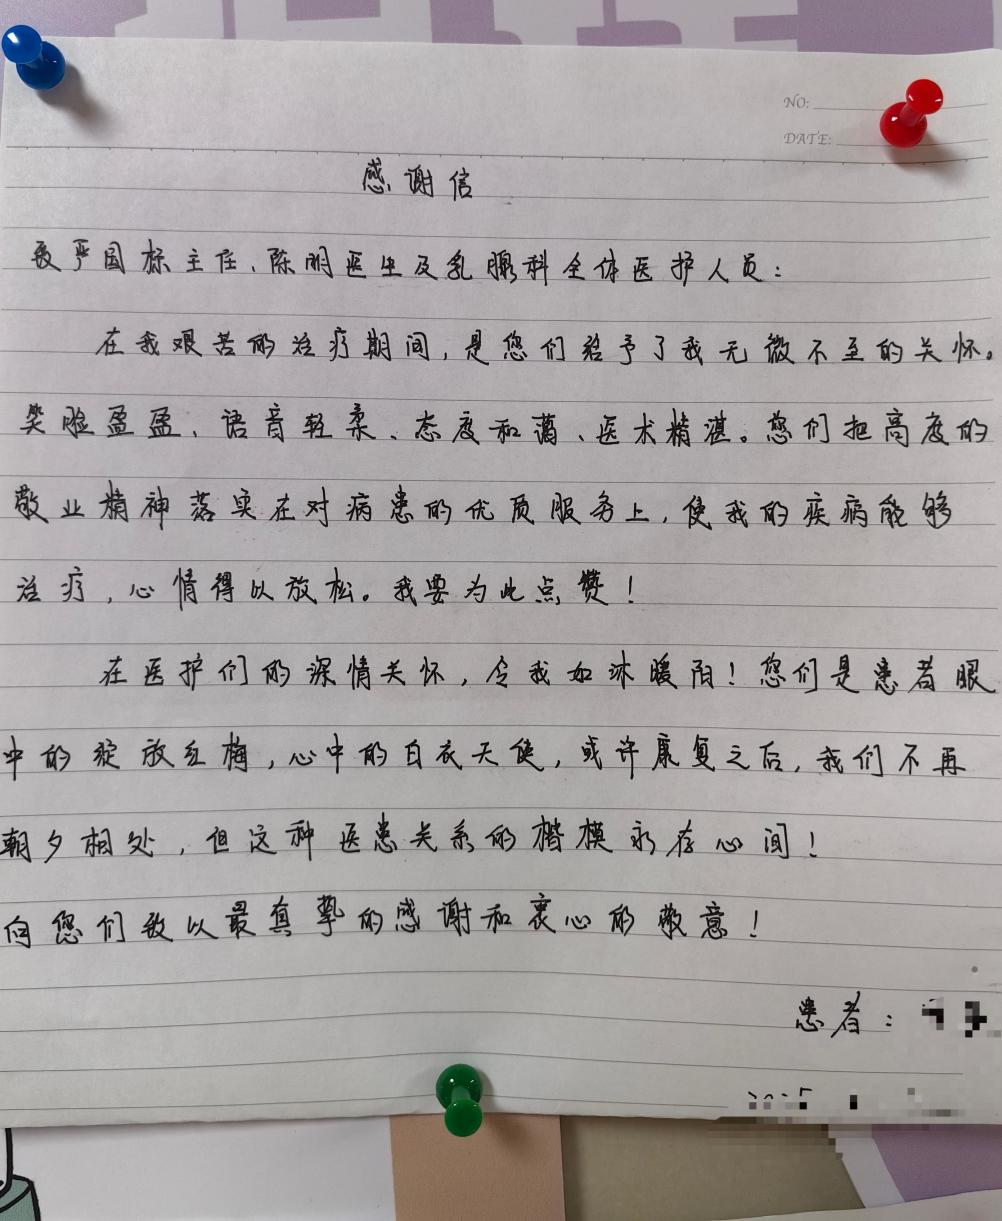 NO:
DATE:
感谢信
致严国标主任、陈明医生及乳腺科全体医护人员：
在我艰苦的治疗期间，是您们给予了我无微不至的关怀。
笑脸盈盈、语音轻柔、态度和蔼、医术精湛。您们把高度的
敬业精神落实在对病患的优质服务上，使我的疾病能够
治疗，心情得以放松。我要为此点赞！
在医护们的深情关怀，令我如沐暖阳！您们是患者眼
中的绽放红梅，心中的白衣天使，或许康复之后，我们不再
朝夕相处，但这种医患关系的楷模永存心间！
向您们致以最真挚的感谢和衷心的敬意！
患者：